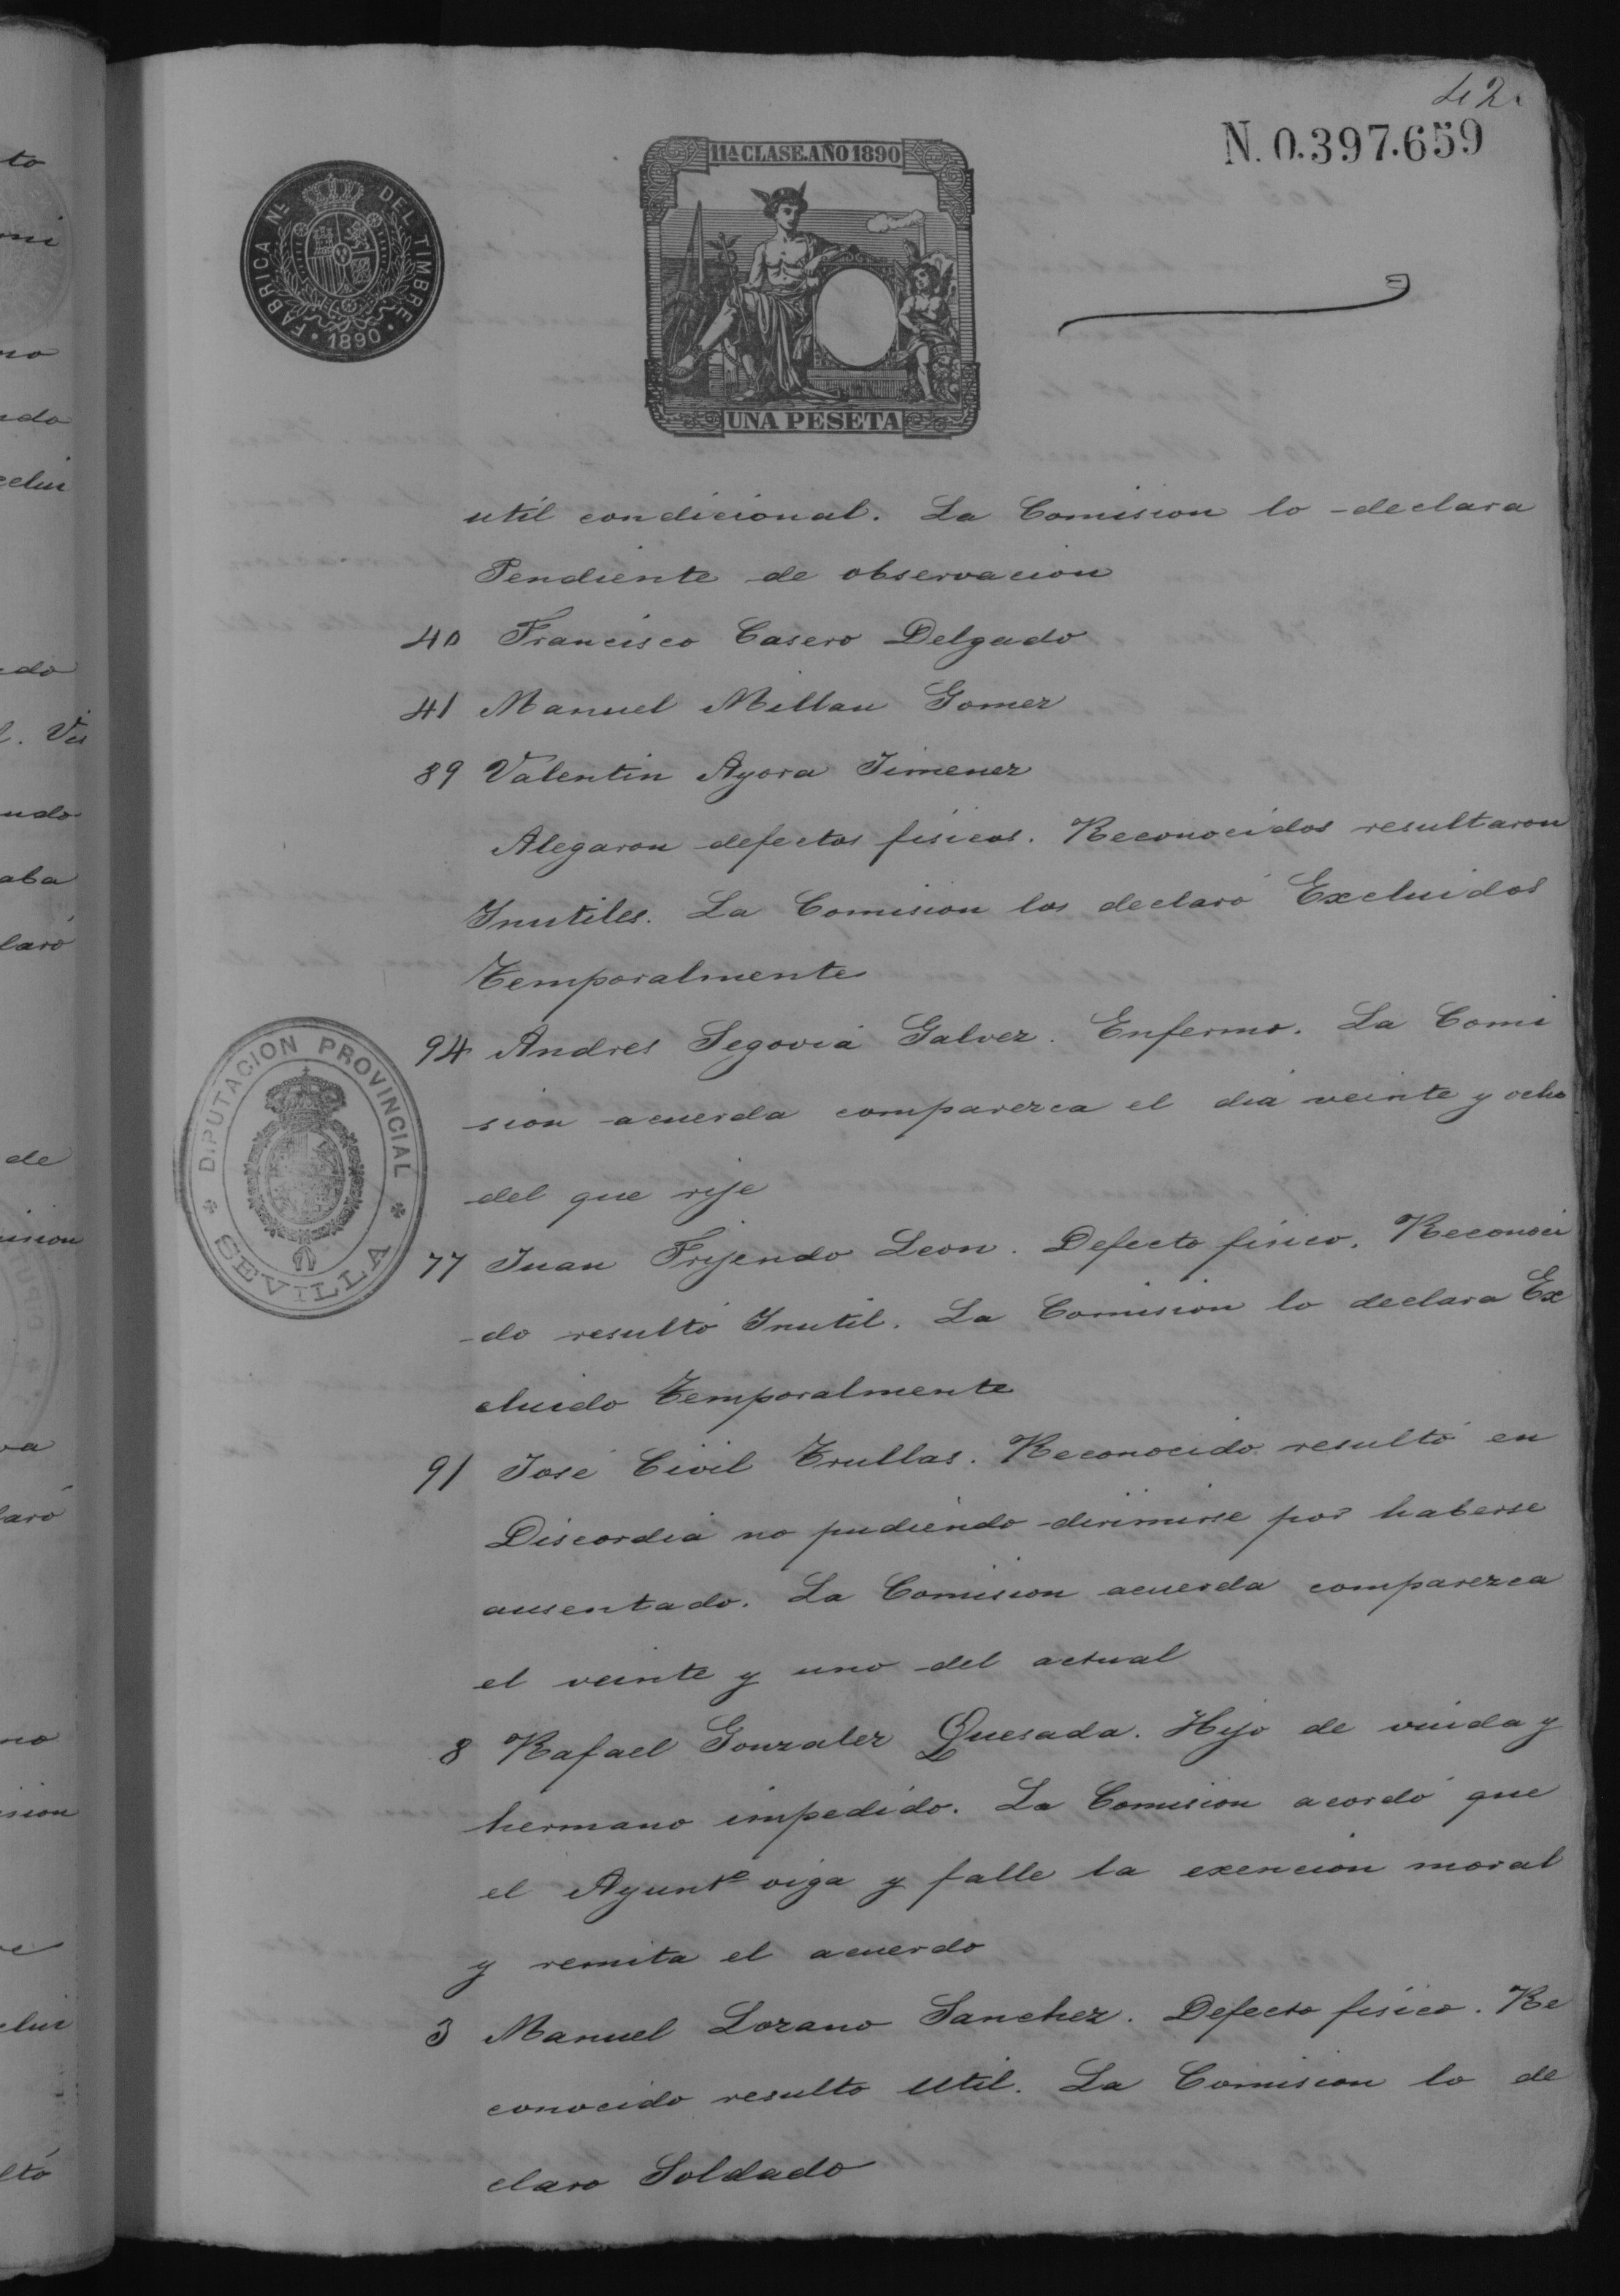 42.
N. 0.397.659
11ª CLASE. AÑO 1890
FABRICA Nᴸ DEL TIMBRE
1890
UNA PESETA
util condicional. La Comision lo declara
Pendiente de observacion
40 Francisco Casero Delgado
41 Manuel Millan Gomez
89 Valentin Ayora Jimenez
Alegaron defectos fisicos. Reconocidos resultaron
Inutiles. La Comision los declaró Excluidos
Temporalmente
94 Andres Segovia Galvez. Enfermo. La Comi
sion acuerda comparezca el dia veinte y ocho
del que rije
77 Juan Frijendo Leon. Defecto fisico. Reconoci
do resultó Inutil. La Comision lo declara Ex
cluido Temporalmente
91 José Civil Trullas. Reconocido resultó en
Discordia no pudiendo dirimirse por haberse
ausentado. La Comision acuerda comparezca
el veinte y uno del actual
8 Rafael Gonzalez Quesada. Hijo de viuda y
hermano impedido. La Comision acordó que
el Ayuntº oiga y falle la exencion moral
y remita el acuerdo
3 Manuel Lozano Sanchez. Defecto fisico. Re
conocido resulto Util. La Comision lo de
claro Soldado
DIPUTACION PROVINCIAL
SEVILLA